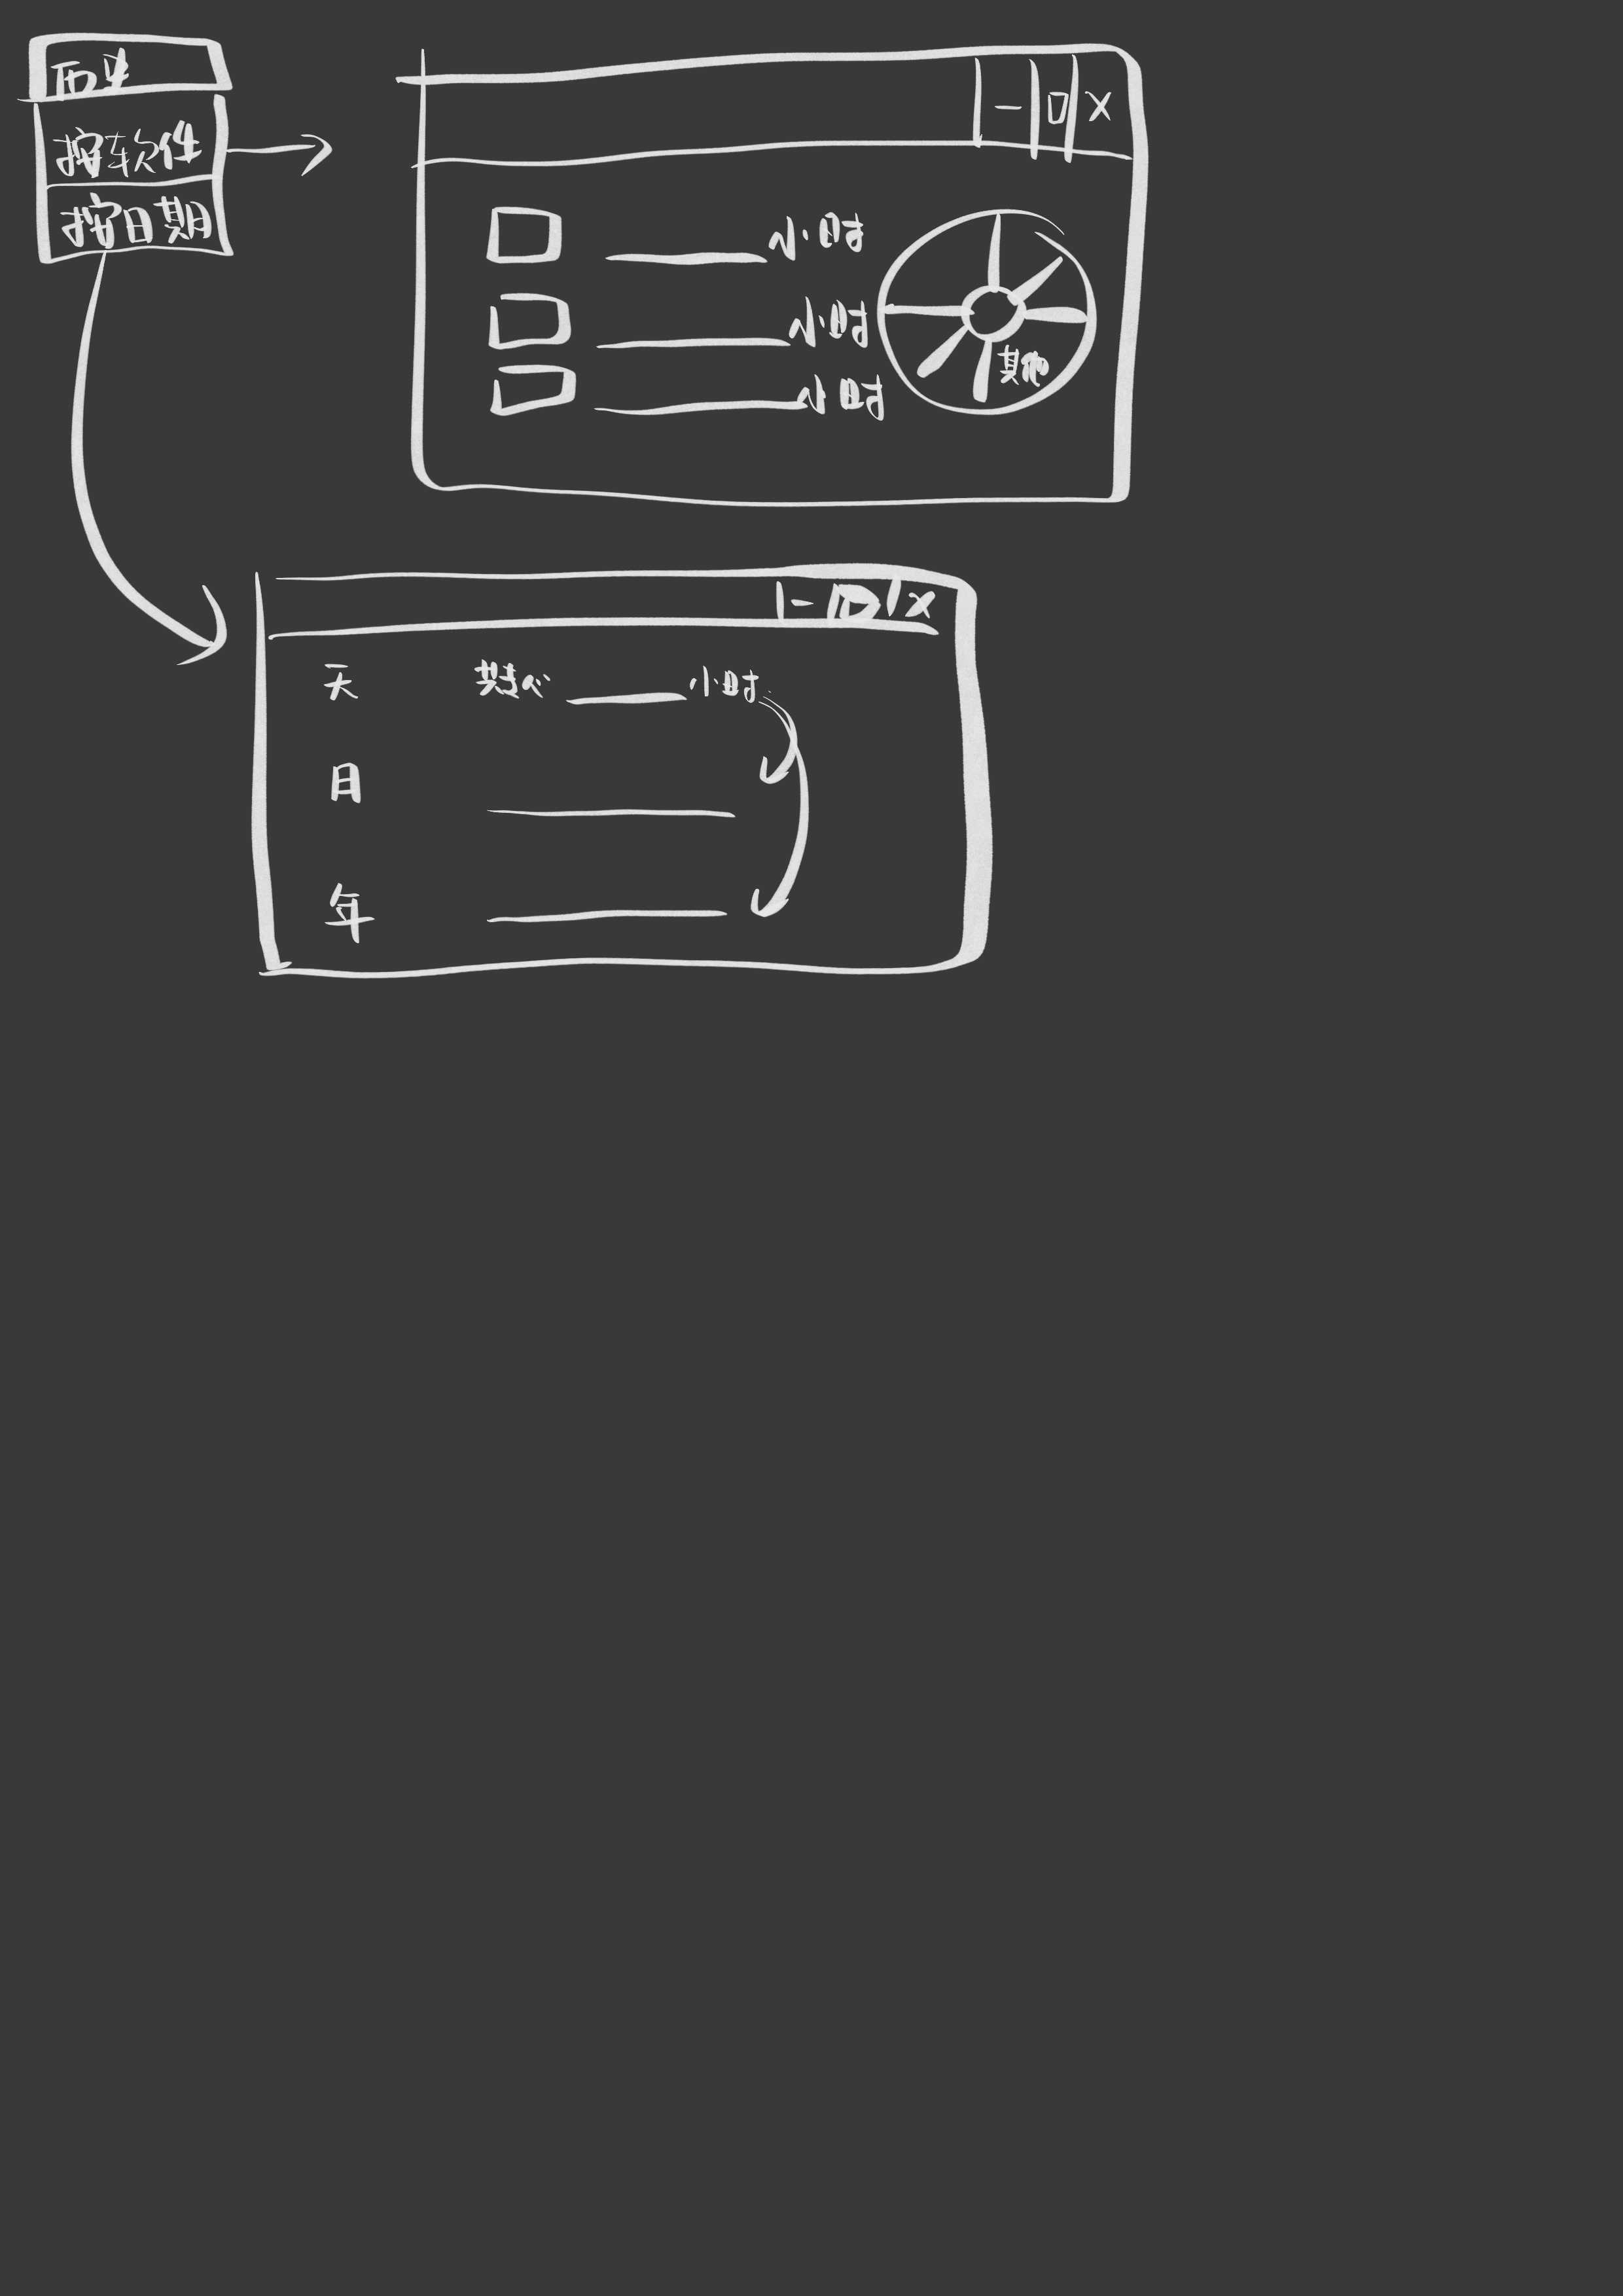 历史
按软件
按日期
- □ X
小时
小时
小时
其他
- □ X
天 总 小时
日
年